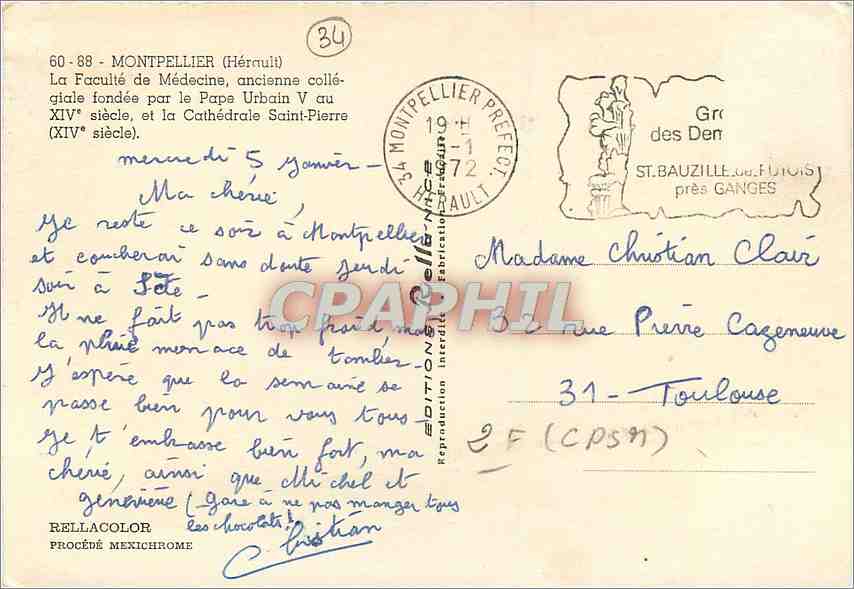 34
60-88 - MONTPELLIER (Hérault)
La Faculté de Médecine, ancienne collé-
giale fondée par le Pape Urbain V au
XIVe siècle, et la Cathédrale Saint-Pierre
(XIVe siècle).
mercredi 5 Janvier -
Ma chérie,
Je reste ce soir à Montpellier
et coucherai sans doute jeudi
soir à Sète -
Il ne fait pas trop froid, mais
la pluie menace de tomber -
J'espère que la semaine se
passe bien pour vous tous -
Je t'embrasse bien fort, ma
chérie, ainsi que Michel et
geneviève (gare à ne pas manger tous
les chocolats!
Christian
RELLACOLOR
PROCÉDÉ MEXICHROME
EDITIONS Rella NICE
Reproduction interdite - Fabrication
34 MONTPELLIER PREFECT.
19 H
-1
1972
HERAULT
des Dem
ST. BAUZILLE DE PUTOIS
près GANGES
CPAPHIL
Madame Christian Clair
32 rue Pierre Cazeneuve
31 - Toulouse
2 F (CPSM)